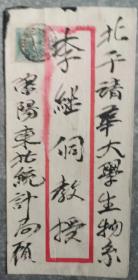 北平請華大學生物系
李继侗教授
瀋陽東北統計局顾